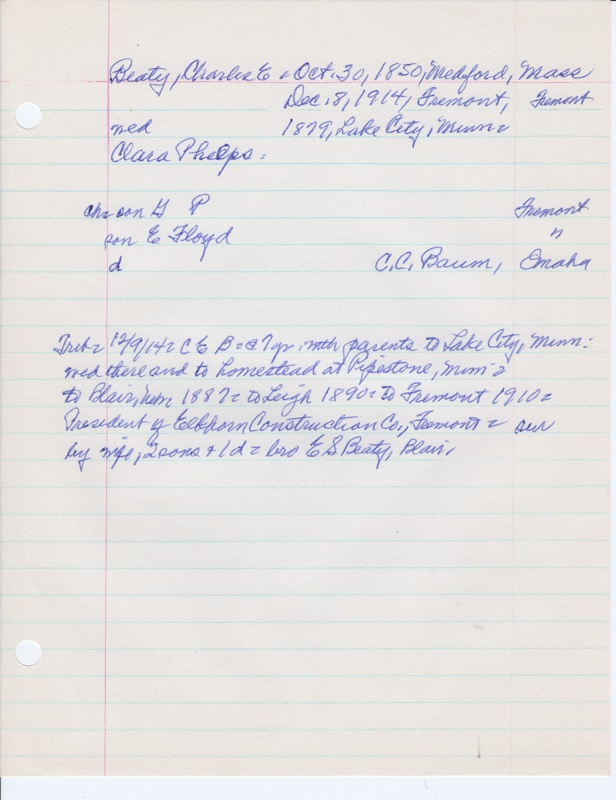 Beaty, Charles E = Oct. 30, 1850, Medford, Mass
Dec. 8, 1914, Fremont, Fremont
wed 1879, Lake City, Minn =
Clara Phelps.
ch = son G P Fremont
son E Floyd "
d C.C. Baum, Omaha
Trib = 12/9/14 = C E B = @ 7 yr. with parents to Lake City, Minn =
wed there and to homestead at Pipestone, Minn =
to Blair, Nebr 1887 = to Leigh 1890 = to Fremont 1910 =
President of Elkhorn Construction Co., Fremont = sur
by wife, 2 sons + 1 d = bro E S Beaty, Blair.